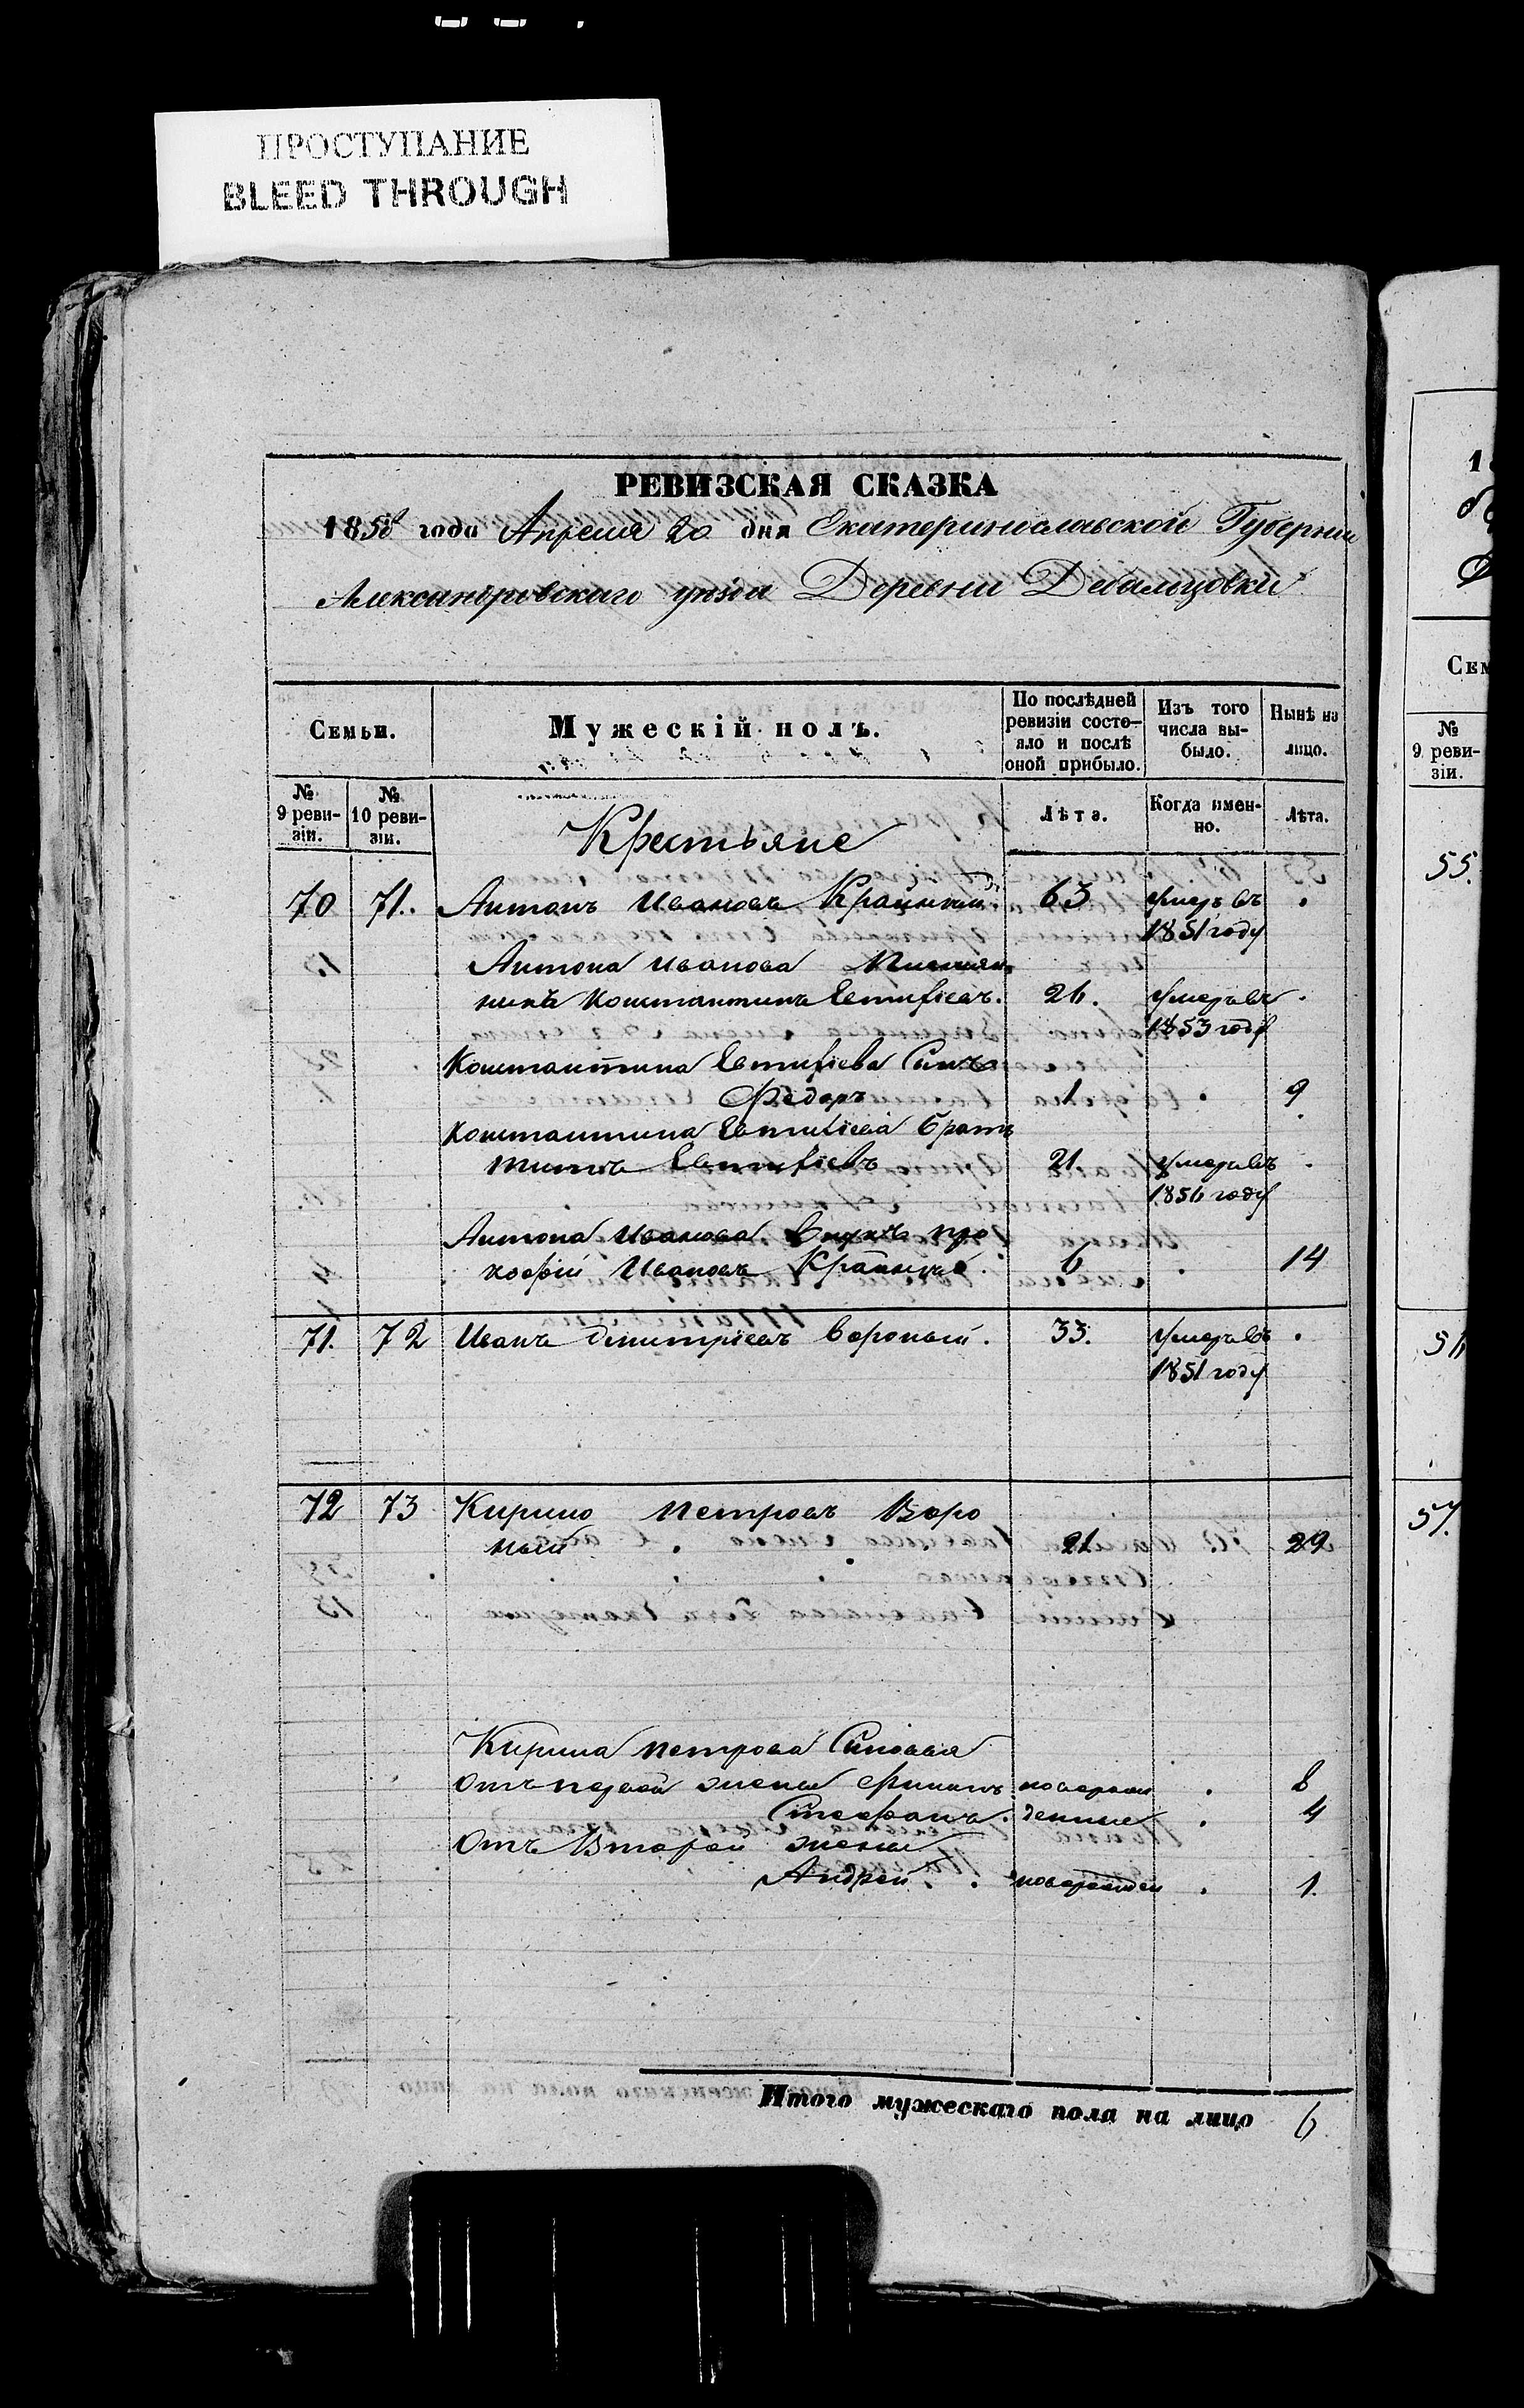 ПРОСТУПАНИЕ
BLEED THROUGH
РЕВИЗСКАЯ СКАЗКА
1858 года Апреля 20 дня Екатеринославской Губернии
Александровскаго уѣзда Деревни Дебальцовки
Семьи.
Мужескій полъ.
По послѣдней ревизіи состояло и послѣ оной прибыло.
Изъ того числа выбыло.
Нынѣ на лицо.
№ 9 ревизіи.
№ 10 ревизіи.
Лѣта.
Когда именно.
Лѣта.
Крестьяне
70 71. Антонъ Ивановъ 63 умеръ въ
1851 году
Антона Иванова Племян
никъ Константинъ Евтифіевъ. 26. умеръ въ
1853 году
Константина Евтифіева Сынъ
Федоръ 1 9
Константина Евтифіева братъ
Титъ Евтифіевъ 21 умеръ въ
1856 году
Антона Иванова внукъ про
кофій Ивановъ 6 14
71. 72 Иванъ Дмитріевъ Вороный. 33. умеръ въ
1851 году
72 73 Кирило Петровъ Воро
ный 21 29
Кирила Петрова Сыновья
Отъ первой жены новорож 8
Стефанъ. денные 4
Отъ Второй жены
Андрей. новорожден 1.
Итого мужескаго пола на лицо 6
№ 9 ревизіи.
55.
57.